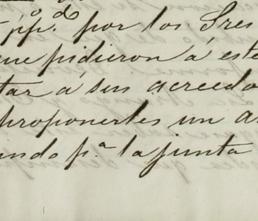 pp.s por los Sres
que pidieron á este
tar á sus acreedo
proponerles un a
ando p.a la junta